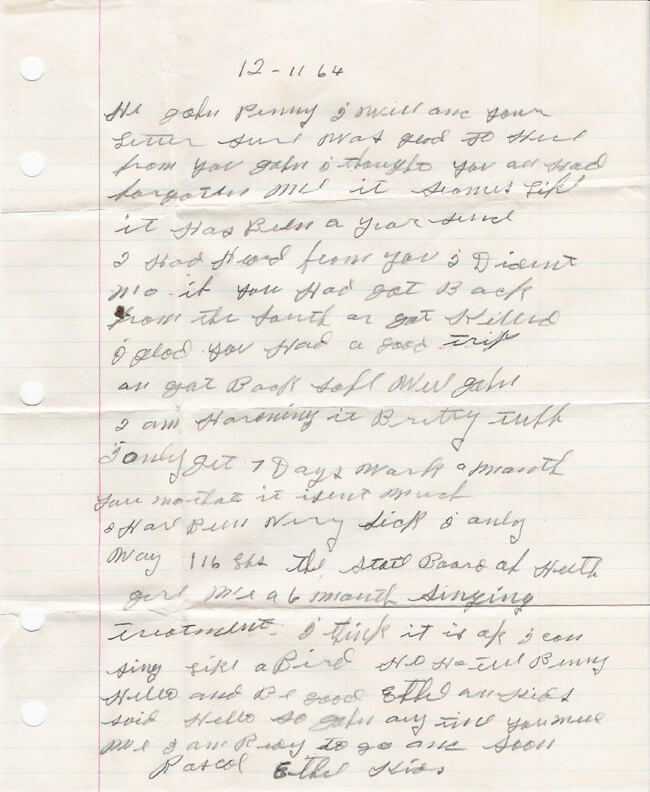 12-11 64
Hi John Penny I will ans your
Letter sure was good to Here
from you John i thought you all Had
forgoten Me it seames Like
it Has Been a year since
I Had Heard from you I Dident
no if you Had got Back
from the South or got Killed
i glad you Had a good trip
an got Back safe Well John
I am Havening it Pretty tuff
I only get 7 Days Work a Month
you no that it isent Much
i Have Been Very Sick i only
Way 116 Lbs the State Board of Helth
give Me a 6 month Singing
treatment. I think it is ok I can
sing Like a Bird Penny
Hello and Be good Ethel an Kids
said Hello so John any time you
Me I am Redy to go ans soon
Rascol Ethel Kids